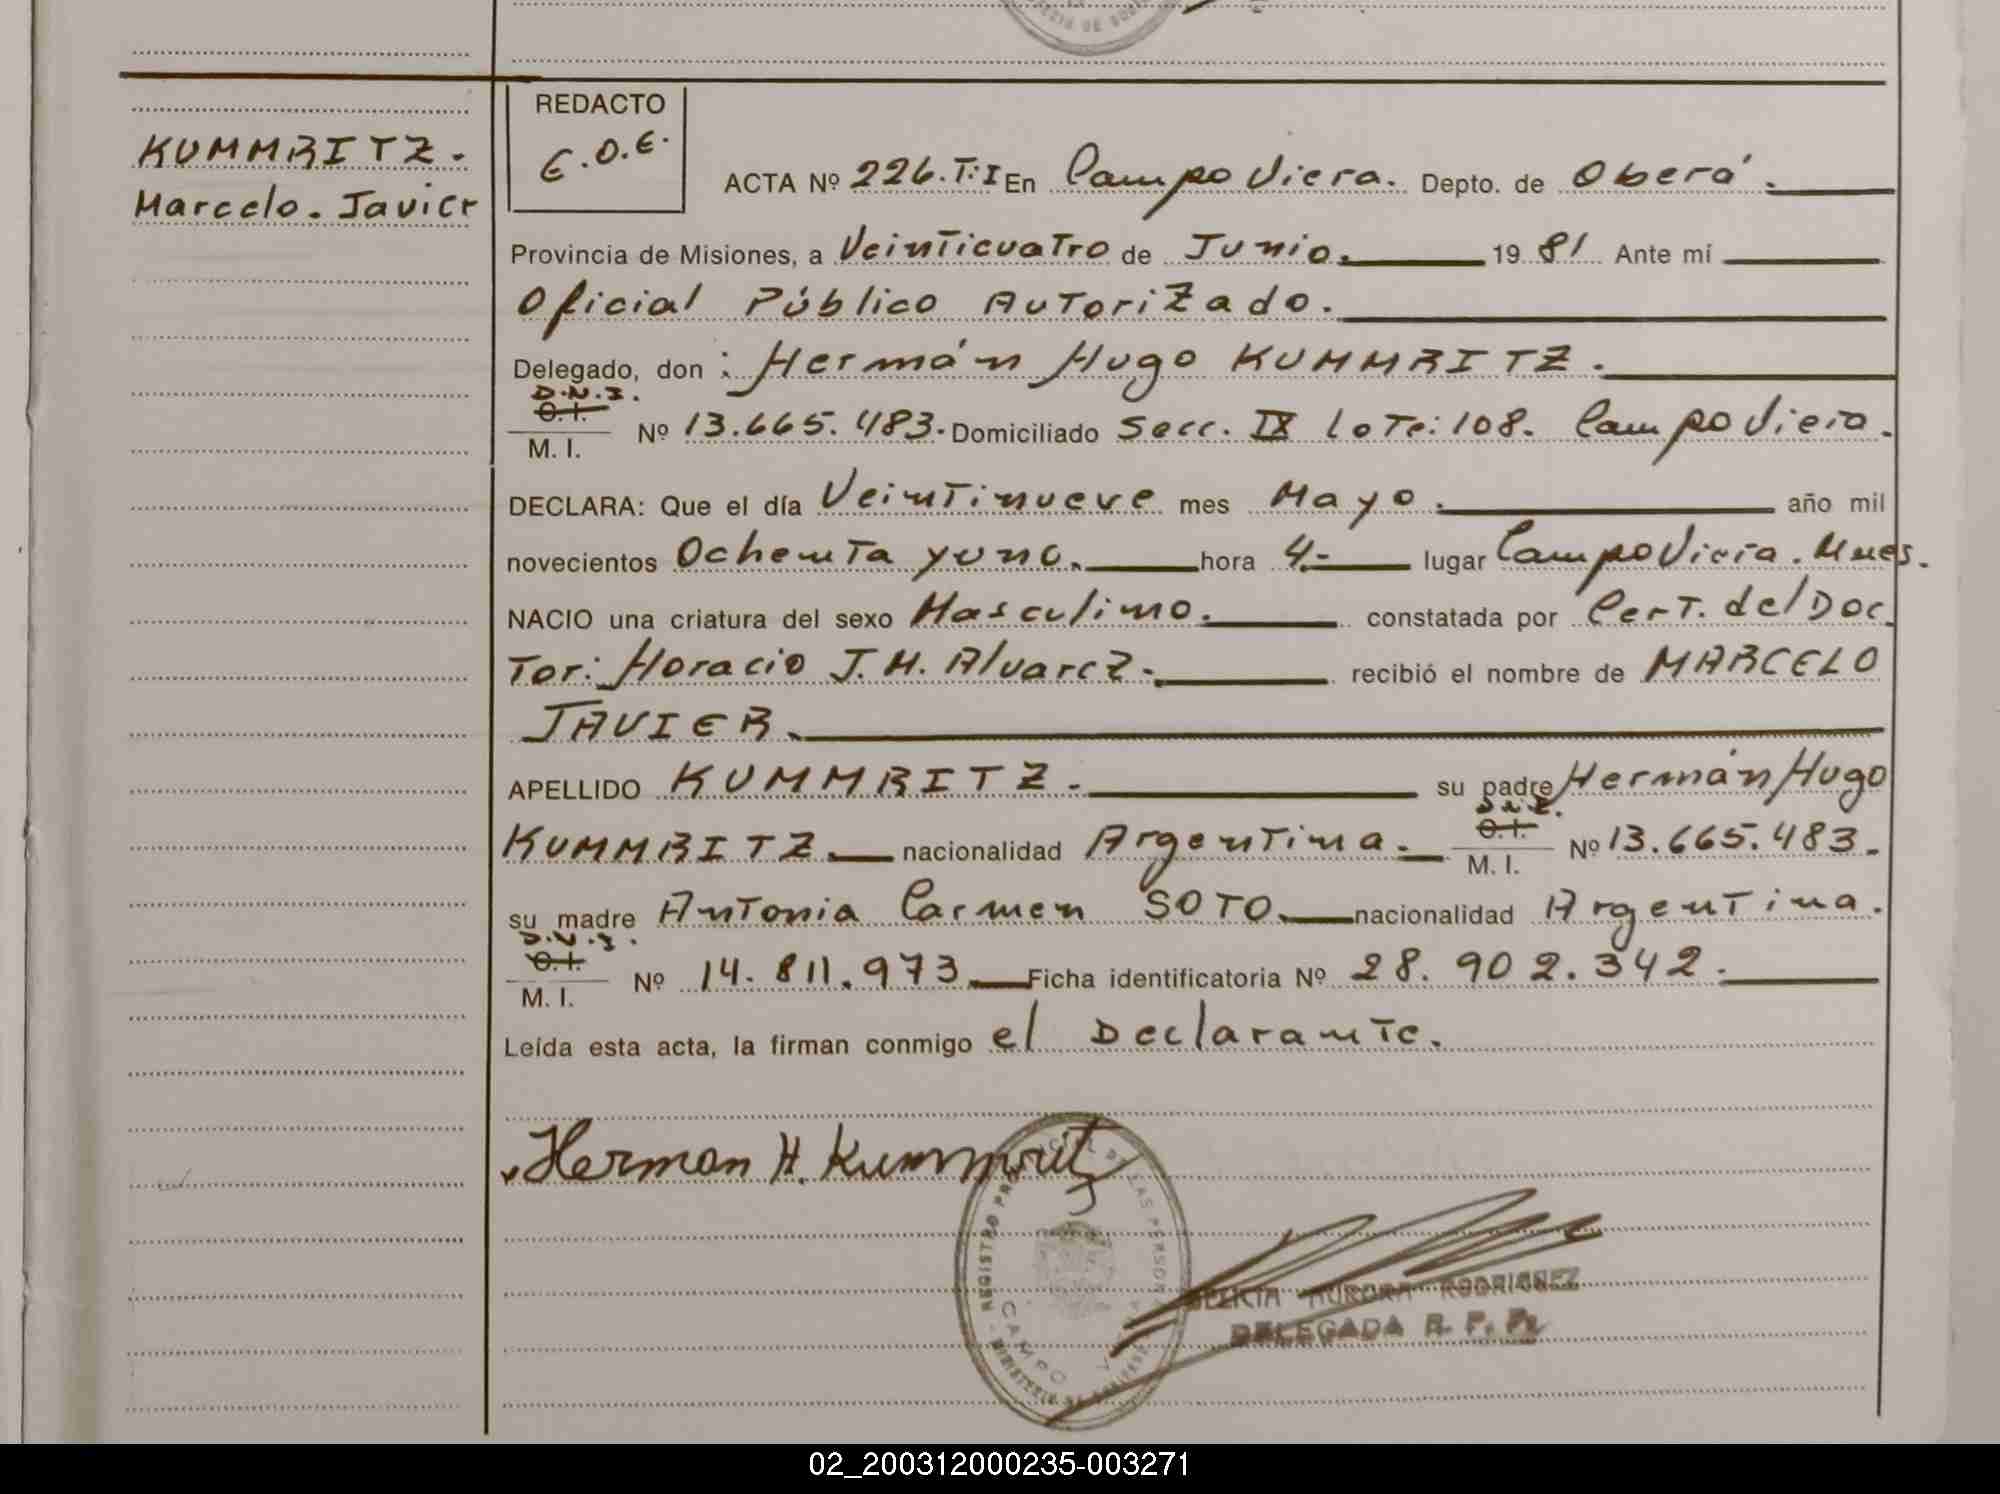 KUMMRITZ.
Marcelo. Javier
REDACTO
E.O.E.
ACTA Nº 226. T:I En Campo Viera. Depto. de Oberá.
Provincia de Misiones, a Veinticuatro de Junio. 19 81 Ante mí
Oficial Público Autorizado.
Delegado, don : Hermán Hugo KUMMRITZ.
D.N.I.
C.I.
M. I. Nº 13.665.483. Domiciliado Secc. IX Lote: 108. Campo Viera.
DECLARA: Que el día Veintinueve mes Mayo. año mil
novecientos Ochenta y uno. hora 4.- lugar Campo Viera. Mnes.
NACIO una criatura del sexo Masculino. constatada por Cert. del Doc
Tor: Horacio J. H. Alvarez. recibió el nombre de MARCELO
JAVIER.
APELLIDO KUMMRITZ. su padre Hermán Hugo
D.N.I.
KUMMRITZ. nacionalidad Argentina. C.I. M. I. Nº 13.665.483.
su madre Antonia Carmen SOTO. nacionalidad Argentina.
D.N.I.
C.I.
M. I. Nº 14.811.973. Ficha identificatoria Nº 28.902.342.
Leída esta acta, la firman conmigo el Declarante.
Herman H. Kummritz
REGISTRO PROVINCIAL DE LAS PERSONAS
CAMPO VIERA
MINISTERIO DE GOBIERNO
AURORA RODRIGUEZ
DELEGADA R. P. P.
02_200312000235-003271